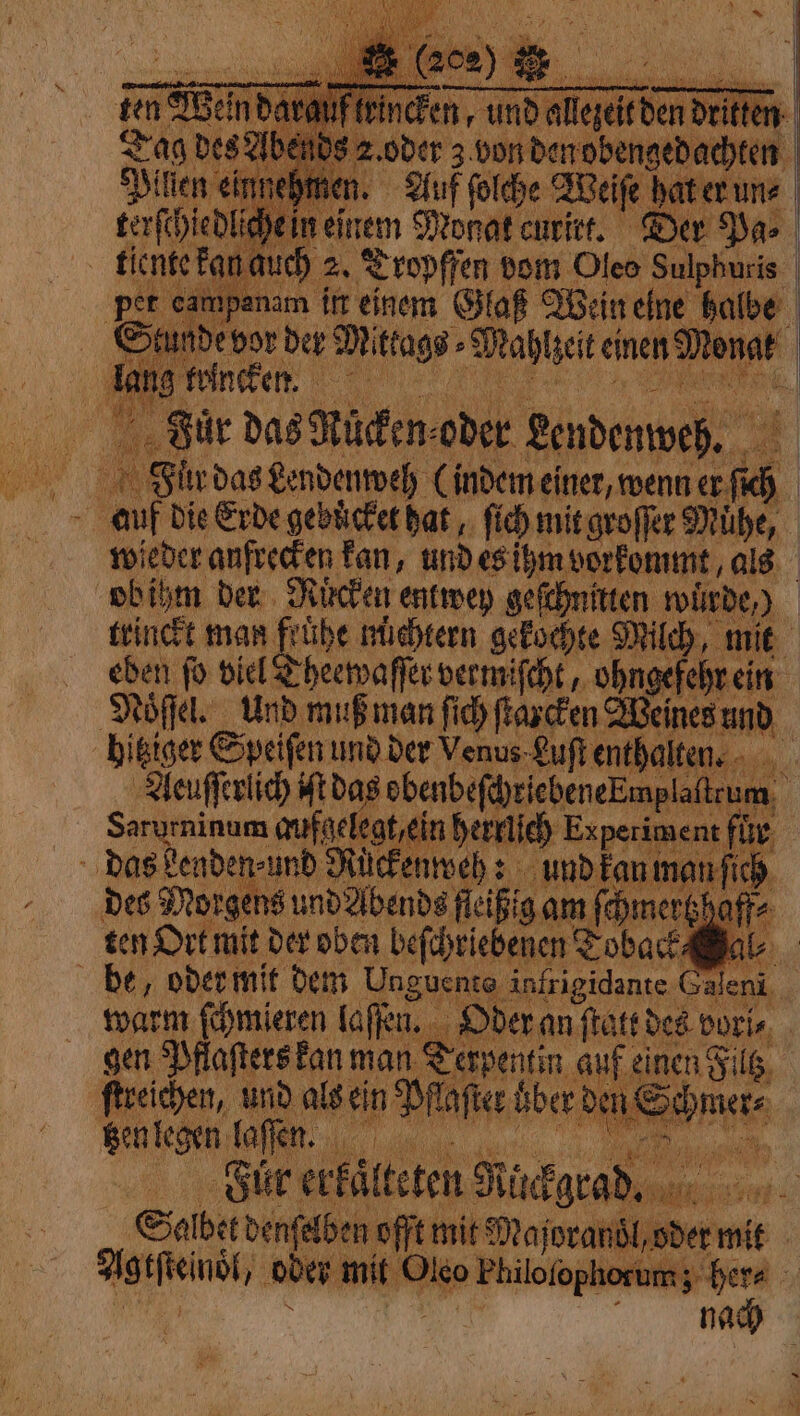 (202)
ten Wein darauf trincken, und allezeit den dritten
Tag des Abends 2. oder 3. von den obengedachten
Pillen einnehmen. Auf ſolche Weiſe hat er un⸗
terſchiedliche in einem Monat curirt. Der Pa⸗
tiente kan auch 2. Tropffen vom Oleo Sulphuris
per campanam in einem Glaß Wein eine halbe
Stunde vor der Mittags⸗Mahlzeit einen Monat
lang trincken.
Fuͤr das Ruͤcken⸗oder Lendenweh.
Fuͤr das Lendenweh (indem einer, wenn er ſich
auf die Erde gebuͤcket hat, ſich mit groſſer Muͤhe,
wieder aufrecken kan, und es ihm vorkommt, als
ob ihm der Ruͤcken entwey geſchnitten wuͤrde,)
trinckt man fruͤhe nuͤchtern gekochte Milch, mit
eben ſo viel Theewaſſer vermiſcht, ohngefehr ein
Noͤſſel. Und muß man ſich ſtarcken Weines und
hitziger Speiſen und der Venus-Luſt enthalten.
Aeuſſerlich iſt das obenbeſchriebene Emplaſtrum
Saturninum aufgelegt, ein herrlich Experiment fuͤr
das Lenden⸗und Ruͤckenweh: und kan man ſich
des Morgens und Abends fleißig am ſchmertzhaff⸗
ten Ort mit der oben beſchriebenen Toback⸗Sal⸗
be, oder mit dem Unguento infrigidante Galeni
warm ſchmieren laſſen. Oder an ſtatt des vori⸗
gen Pflaſters kan man Terpentin auf einen Filtz
ſtreichen, und als ein Pflaſter uͤber den Schmer⸗
tzen legen laſſen.
Fuͤr erkaͤlteten Ruͤckgrad.
Salbet denſelben offt mit Majoranoͤl, oder mit
Agtſteinoͤl, oder mit Oleo Philoſophorum; her⸗
nach